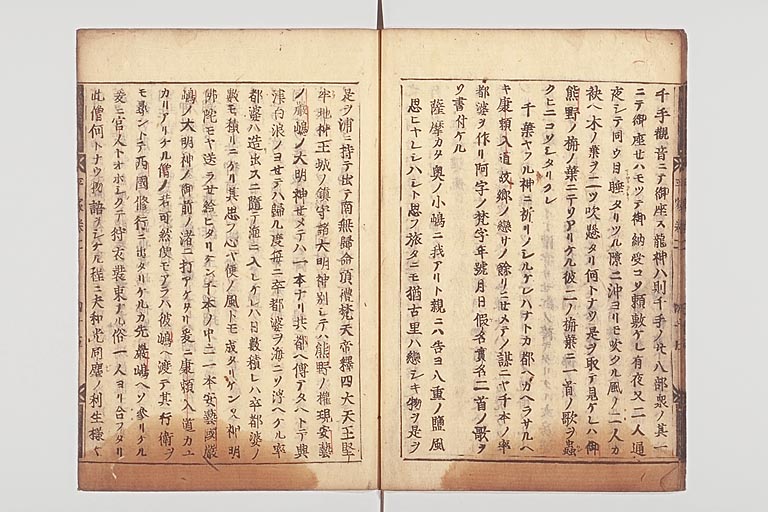 千手觀音ニテ御座ス龍神ハ則千手ノ廿八部衆ノ其一
ニテ御座セハモツテ御納受コソ頼敷ケレ有夜又二人通
夜シテ同ウ目睡タリツル隙ニ沖ヨリモ吹クル風ノ二人カ
袂ヘ木ノ葉ヲ二ツ吹懸タリ何トナウ是ヲ取テ見ケレハ御
熊野ノ梛ノ葉ニテソアリケル彼二ノ梛葉ニ一首ノ歌ヲ蟲
クヒニコソシタリクレ
千葉ヤフル神ニ祈リノシルケレハナトカ都ヘカヘラサルヘ
キ康頼入道故郷ノ戀サノ餘リニセメテノ謀ニヤ千本ノ率
都婆ヲ作リ阿字ノ梵字年號月日假名實名二首ノ歌ヲ
ソ書付ケル
薩摩カタ奥ノ小嶋ニ我アリト親ニハ告ヨ八重ノ鹽風
思ヒヤレシハシト思フ旅タニモ猶古里ハ戀シキ物ヲ是ヲ
是ヲ浦ニ持テ出テ南無歸命頂禮梵天帝釋四大天王堅
牢地神王城ノ鎮守諸大明神別シテハ熊野ノ權現安藝
ノ嚴嶋ノ大明神セメテハ一本ナリ共都ヘ傳テタヘトテ興
津白浪ノヨセテハ歸ル度毎ニ卒都婆ヲ海ニソ浮ヘケル率
都婆ハ造出スニ隨テ海ニ入レケレハ日數積レハ卒都婆ノ
數モ積リニケリ其思フ心ヤ便ノ風トモ成タリケン又神明
佛陀モヤ送ラセ給ヒタリケン千本ノ中ニ一本安藝國嚴
嶋ノ大明神ノ御前ノ渚ニ打アケタリ爰ニ康頼入道カユ
カリアリケル僧ノ若可然便モアラハ彼嶋ヘ渡テ其行衛ヲ
モ尋ントテ西國修行ニ出タリケルカ先嚴嶋ヘソ參リケル
爰ニ宮人トオホシクテ狩衣裝束ナル俗一人ヨリ合フタリ
此僧何トナウ物語ヲシケル程ニ夫和光同塵ノ利生樣々